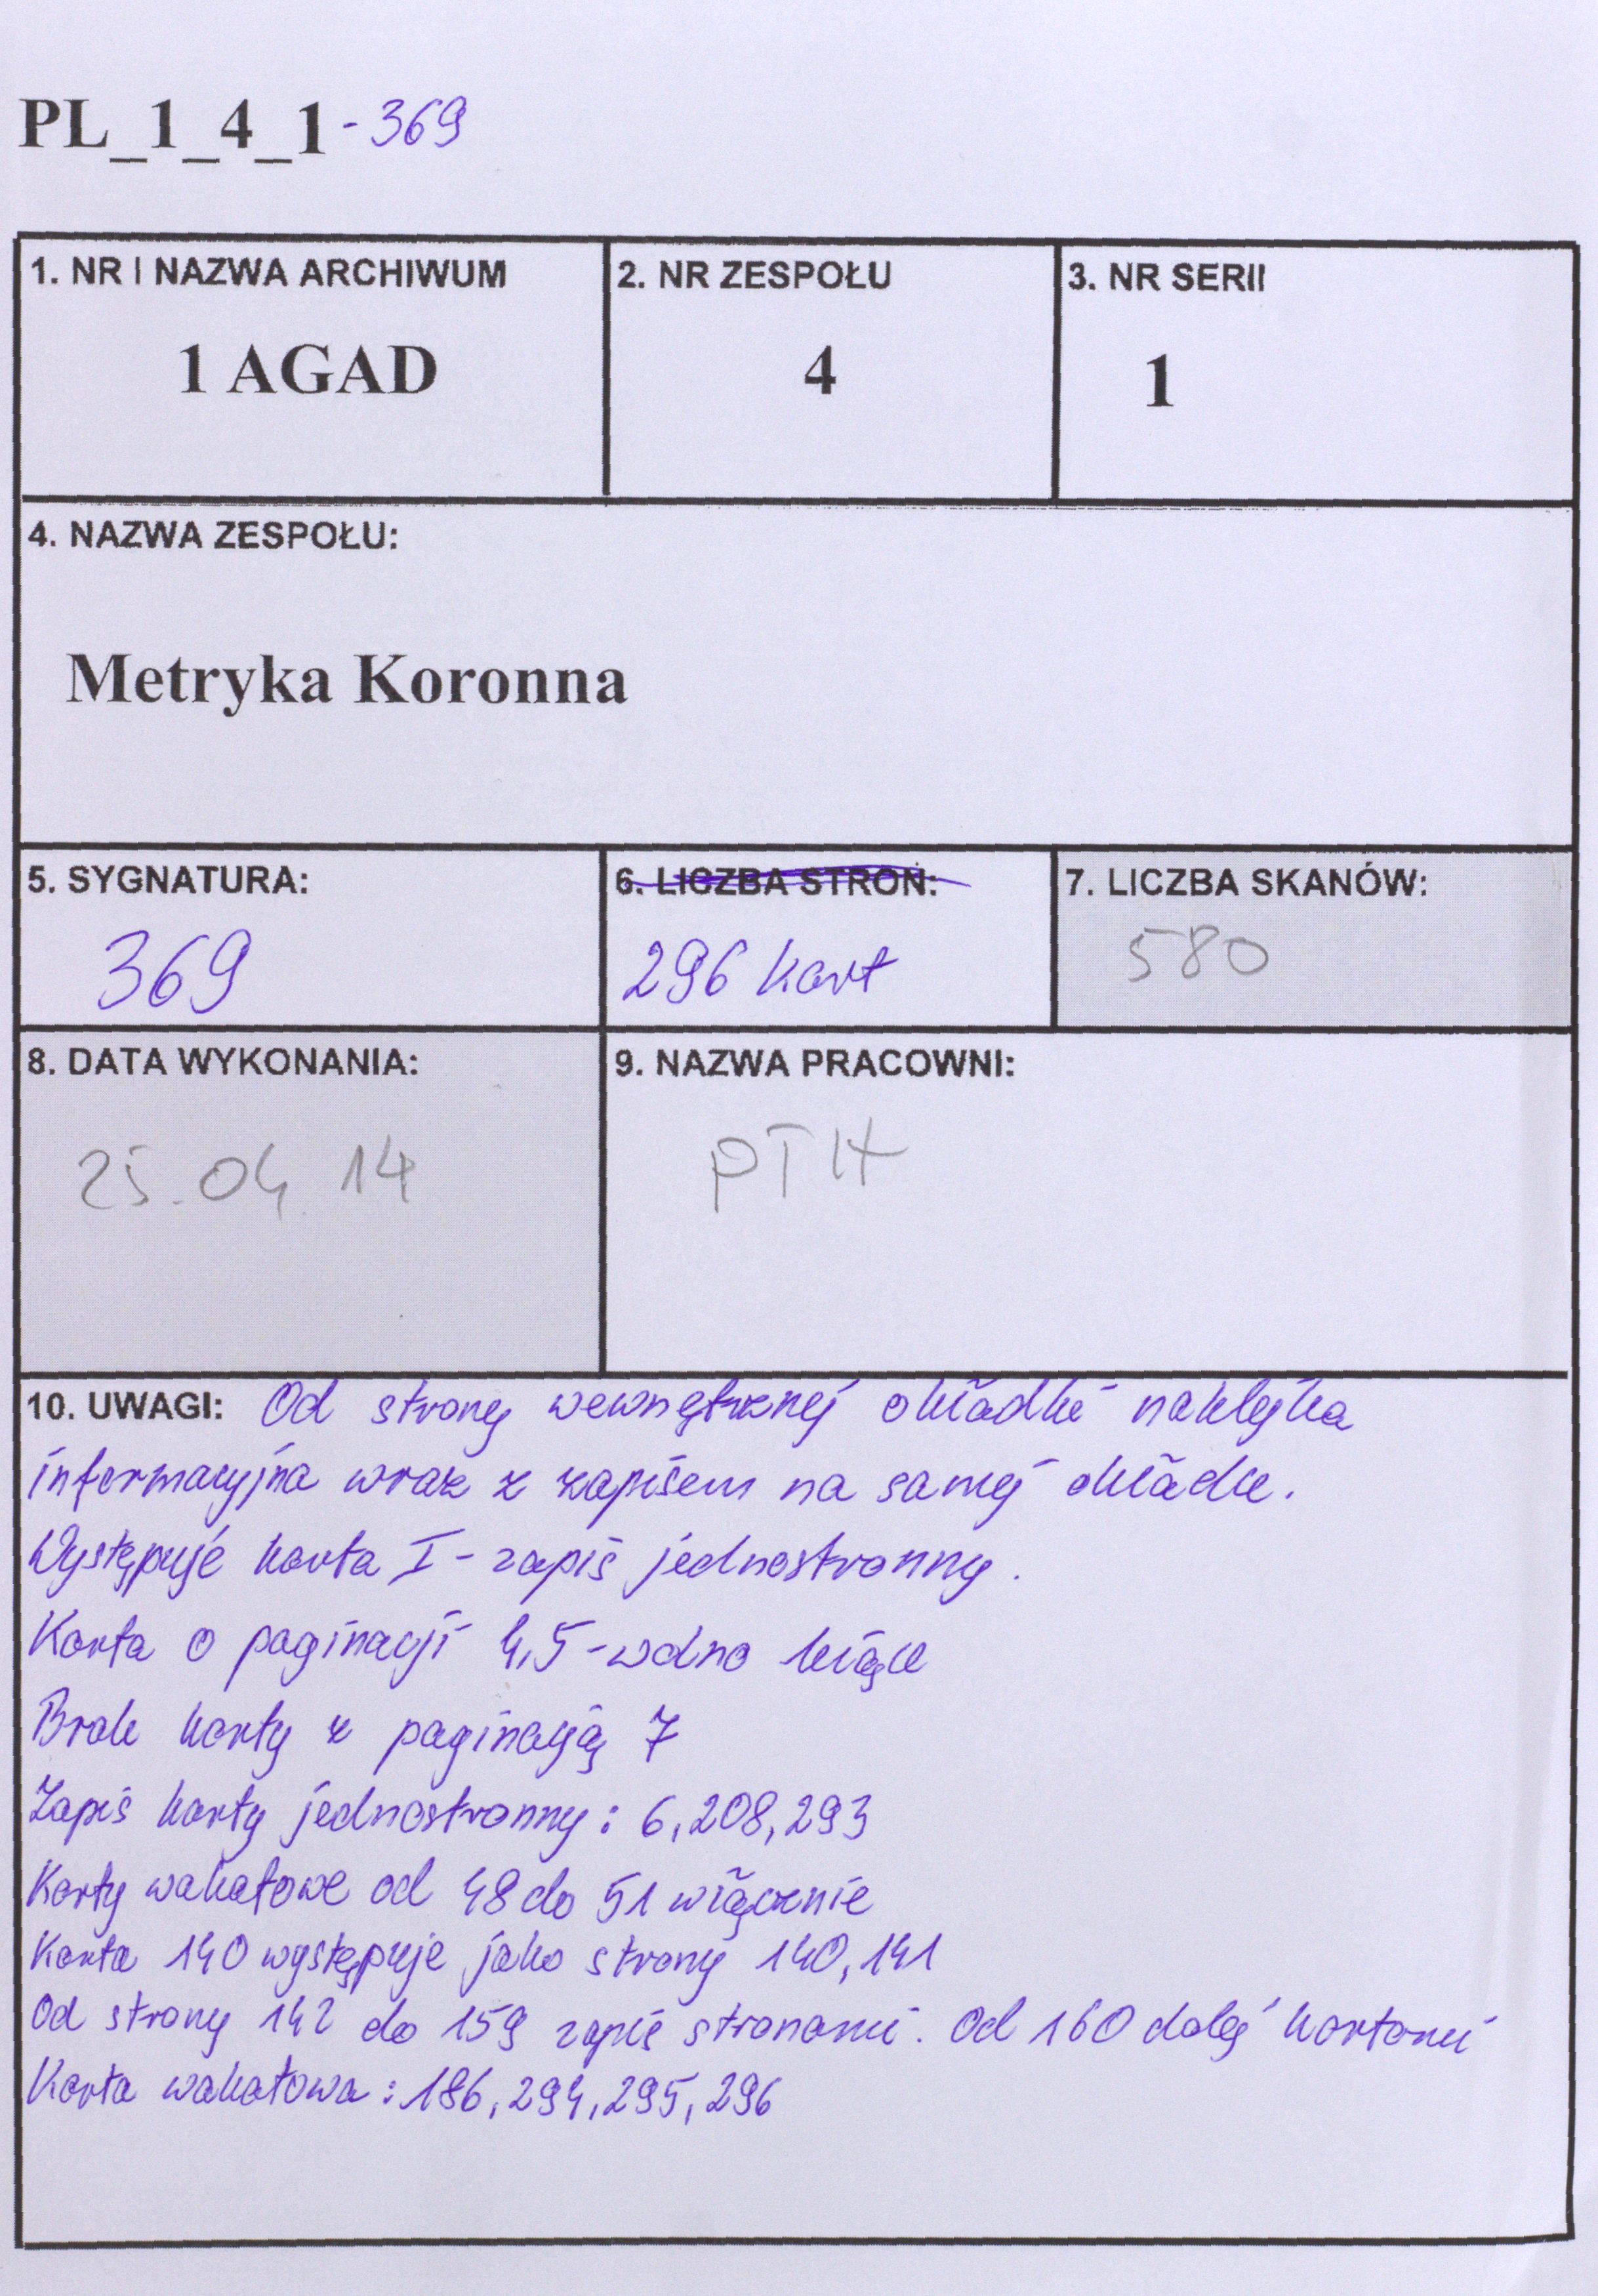 PL_1_4_1-369
1. NR I NAZWA ARCHIWUM
1 AGAD
2. NR ZESPOŁU
4
3. NR SERII
1
4. NAZWA ZESPOŁU:
Metryka Koronna
5. SYGNATURA:
369
6. LICZBA STRON:
296 kart
7. LICZBA SKANÓW:
580
8. DATA WYKONANIA:
25.04.14
9. NAZWA PRACOWNI:
PTH
10. UWAGI: Od strony wewnętrznej okładki naklejka
informacyjna wraz z zapisem na samej okładce.
Występuje karta I - zapis jednostronny.
Karta o paginacji 4,5 - w dno
Brak karty z paginacją 7
Zapis karty jednostronny: 6, 208, 293
Karty wakatowe od 48 do 51 włącznie
Karta 140 występuje jako strony 140, 141
Od strony 142 do 159 zapis stronami. Od 160 dalej kartami
Karta wakatowa: 186, 294, 295, 296